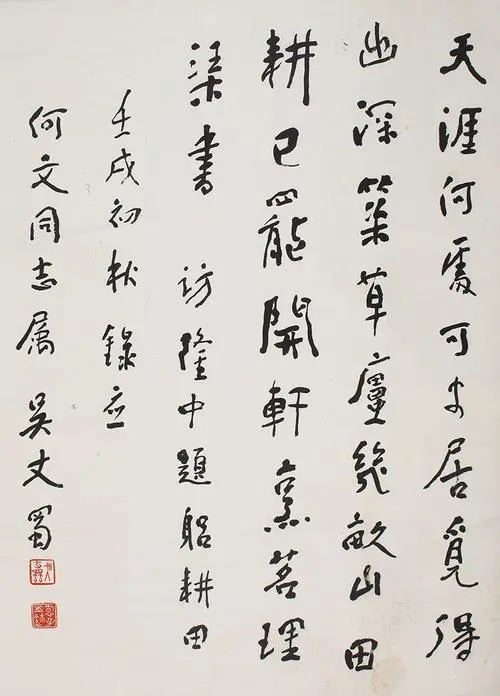 天涯何處可安居覓得
幽深築草廬幾畝山田
耕已罷開軒煮茗理
琹書 訪隆中題躬耕田
壬戌初秋錄应
何文同志属 吴丈蜀